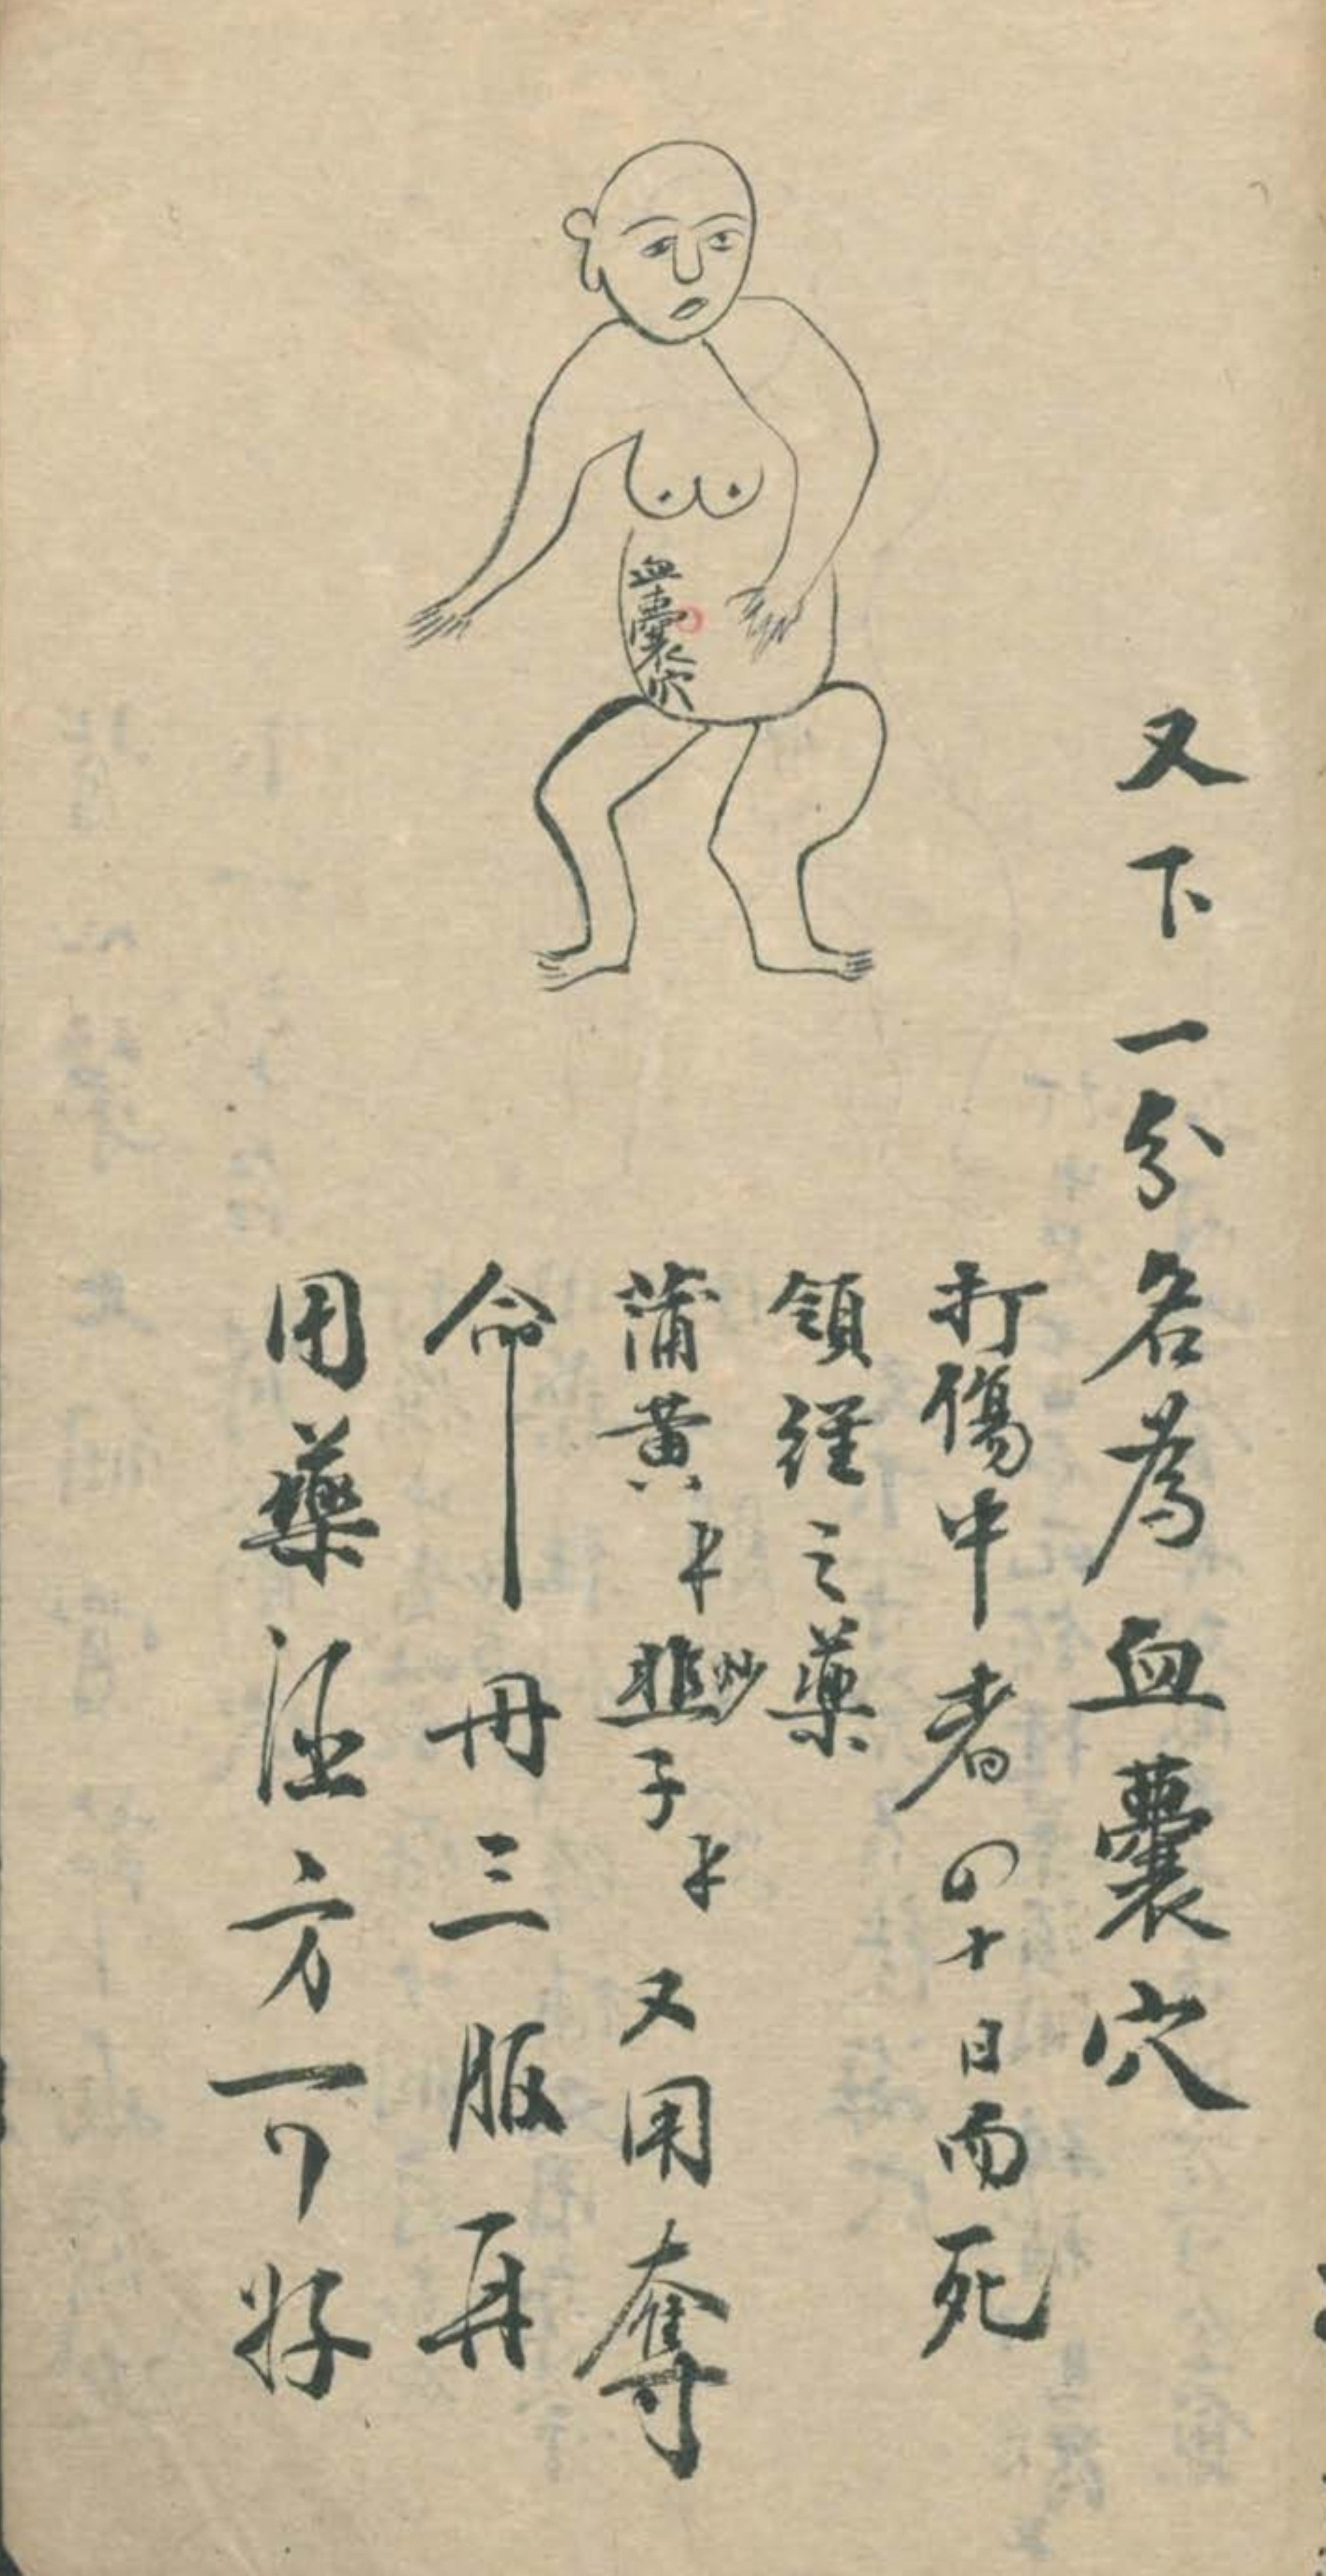 又下一分名為血囊穴
打傷中者四十日而死
領經之藥
蒲黃 韮炒子 又用奪
命丹三服再
用藥酒方可好
血囊穴